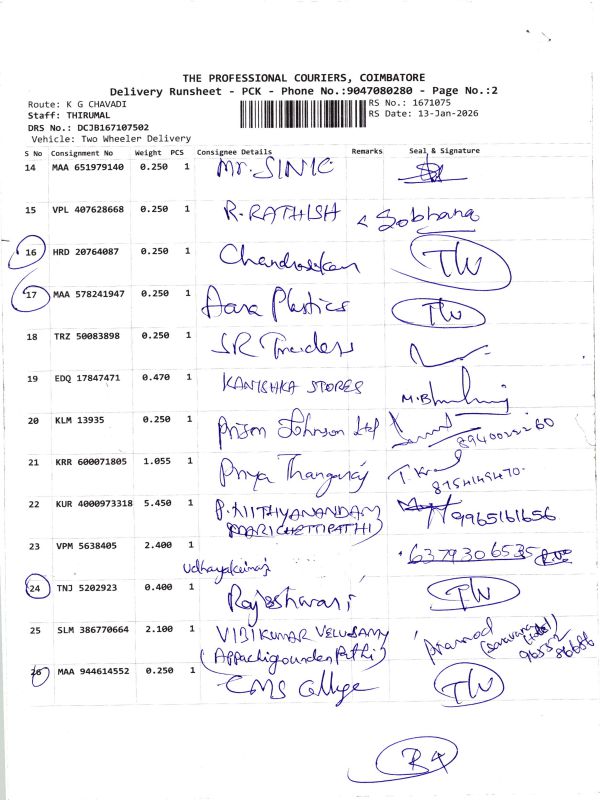 THE PROFESSIONAL COURIERS, COIMBATORE
Delivery Runsheet - PCK - Phone No.:9047080280 - Page No.:2
Route: K G CHAVADI RS No.: 1671075
Staff: THIRUMAL RS Date: 13-Jan-2026
DRS No.: DCJB167107502
Vehicle: Two Wheeler Delivery
S No Consignment No Weight PCS Consignee Details Remarks Seal & Signature
14 MAA 651979140 0.250 1 Mr. SINIC
15 VPL 407628668 0.250 1 R. RATHISH Sobhana
16 HRD 20764087 0.250 1 Chandrasekan TW
17 MAA 578241947 0.250 1 Aara Plastics TW
18 TRZ 50083898 0.250 1 SR Traiders
19 EDQ 17847471 0.470 1 KANISHKA STORES
20 KLM 13935 0.250 1 Johnson Ltd
21 KRR 600071805 1.055 1 Priya Thangaraj
22 KUR 4000973318 5.450 1 P. NITHYANANDAM 9965161656
(MARICHETTIPATHI)
23 VPM 5638405 2.400 1 6379306535
24 TNJ 5202923 0.400 1 Rajeshwari TW
25 SLM 386770664 2.100 1 VIJIKUMAR VELUSAMY Pramod
(Appachigounden Pathi)
26 MAA 944614552 0.250 1 CMS College TW
R4